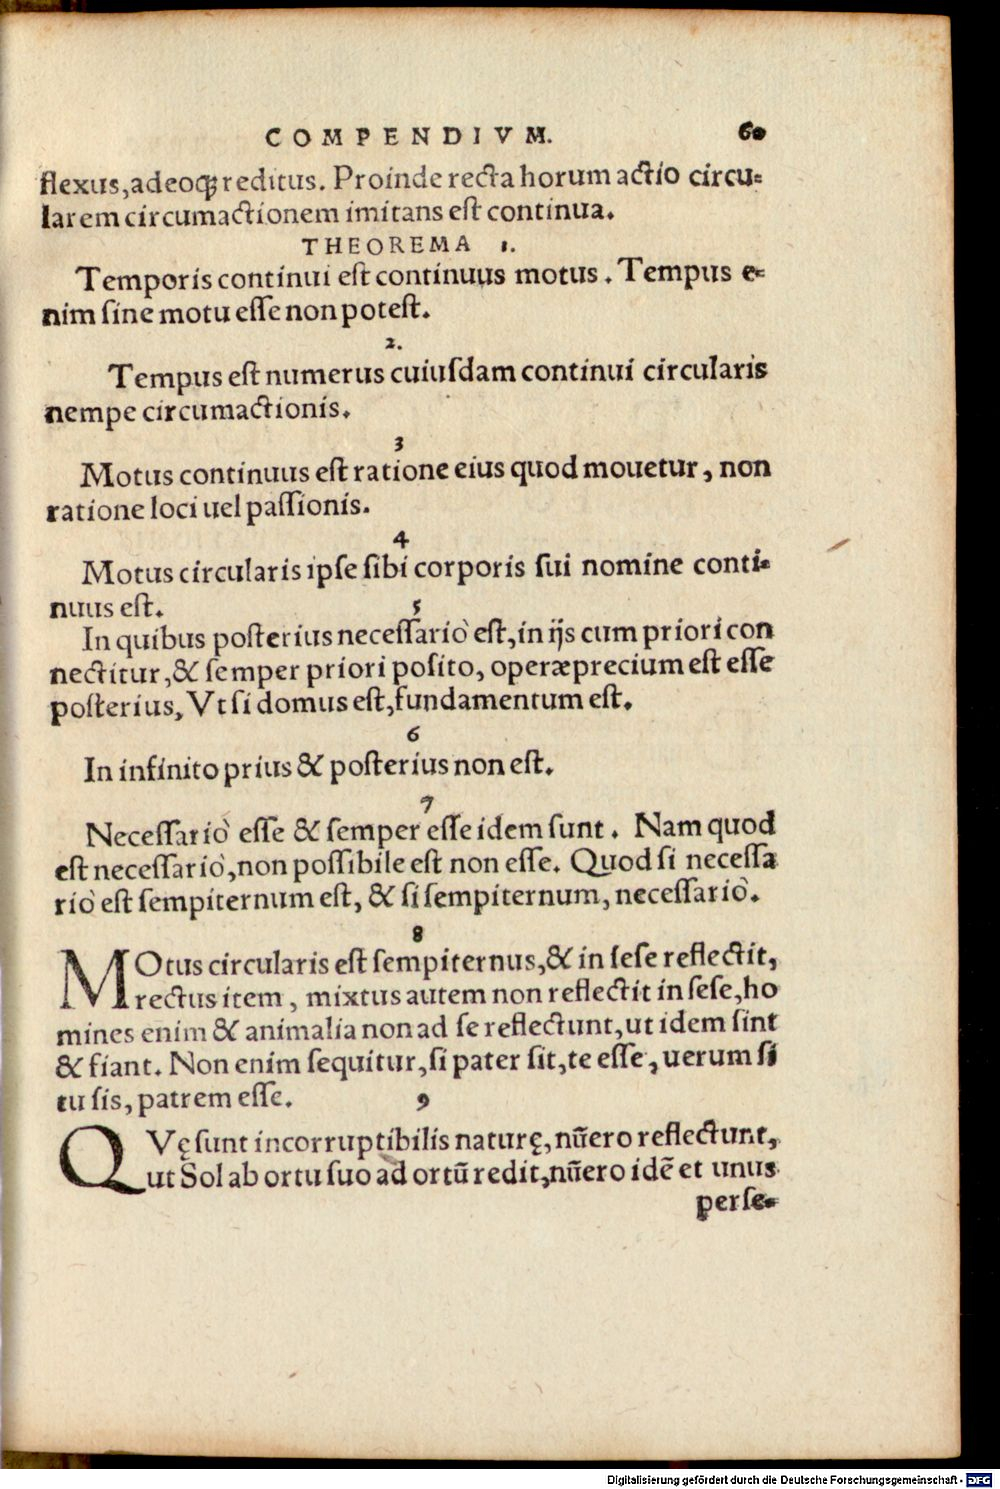 COMPENDIVM. 60
flexus, adeoqꝫ reditus. Proinde recta horum actio circu-
larem circumactionem imitans est continua.
THEOREMA 1.
Temporis continui est continuus motus. Tempus e-
nim sine motu esse non potest.
2.
Tempus est numerus cuiusdam continui circularis
nempe circumactionis.
3
Motus continuus est ratione eius quod mouetur, non
ratione loci uel passionis.
4
Motus circularis ipse sibi corporis sui nomine conti-
nuus est.
5
In quibus posterius necessariò est, in ijs cum priori con
nectitur, & semper priori posito, operæprecium est esse
posterius, Vt si domus est, fundamentum est.
6
In infinito prius & posterius non est.
7
Necessariò esse & semper esse idem sunt. Nam quod
est necessariò, non possibile est non esse. Quod si necessa
riò est sempiternum est, & si sempiternum, necessariò.
8
MOtus circularis est sempiternus, & in sese reflectit,
rectus item, mixtus autem non reflectit in sese, ho
mines enim & animalia non ad se reflectunt, ut idem sint
& fiant. Non enim sequitur, si pater sit, te esse, uerum si
tu sis, patrem esse.
9
QVę sunt incorruptibilis naturę, nũero reflectunt,
ut Sol ab ortu suo ad ortũ redit, nũero idẽ et unus
perse-
Digitalisierung gefördert durch die Deutsche Forschungsgemeinschaft - DFG